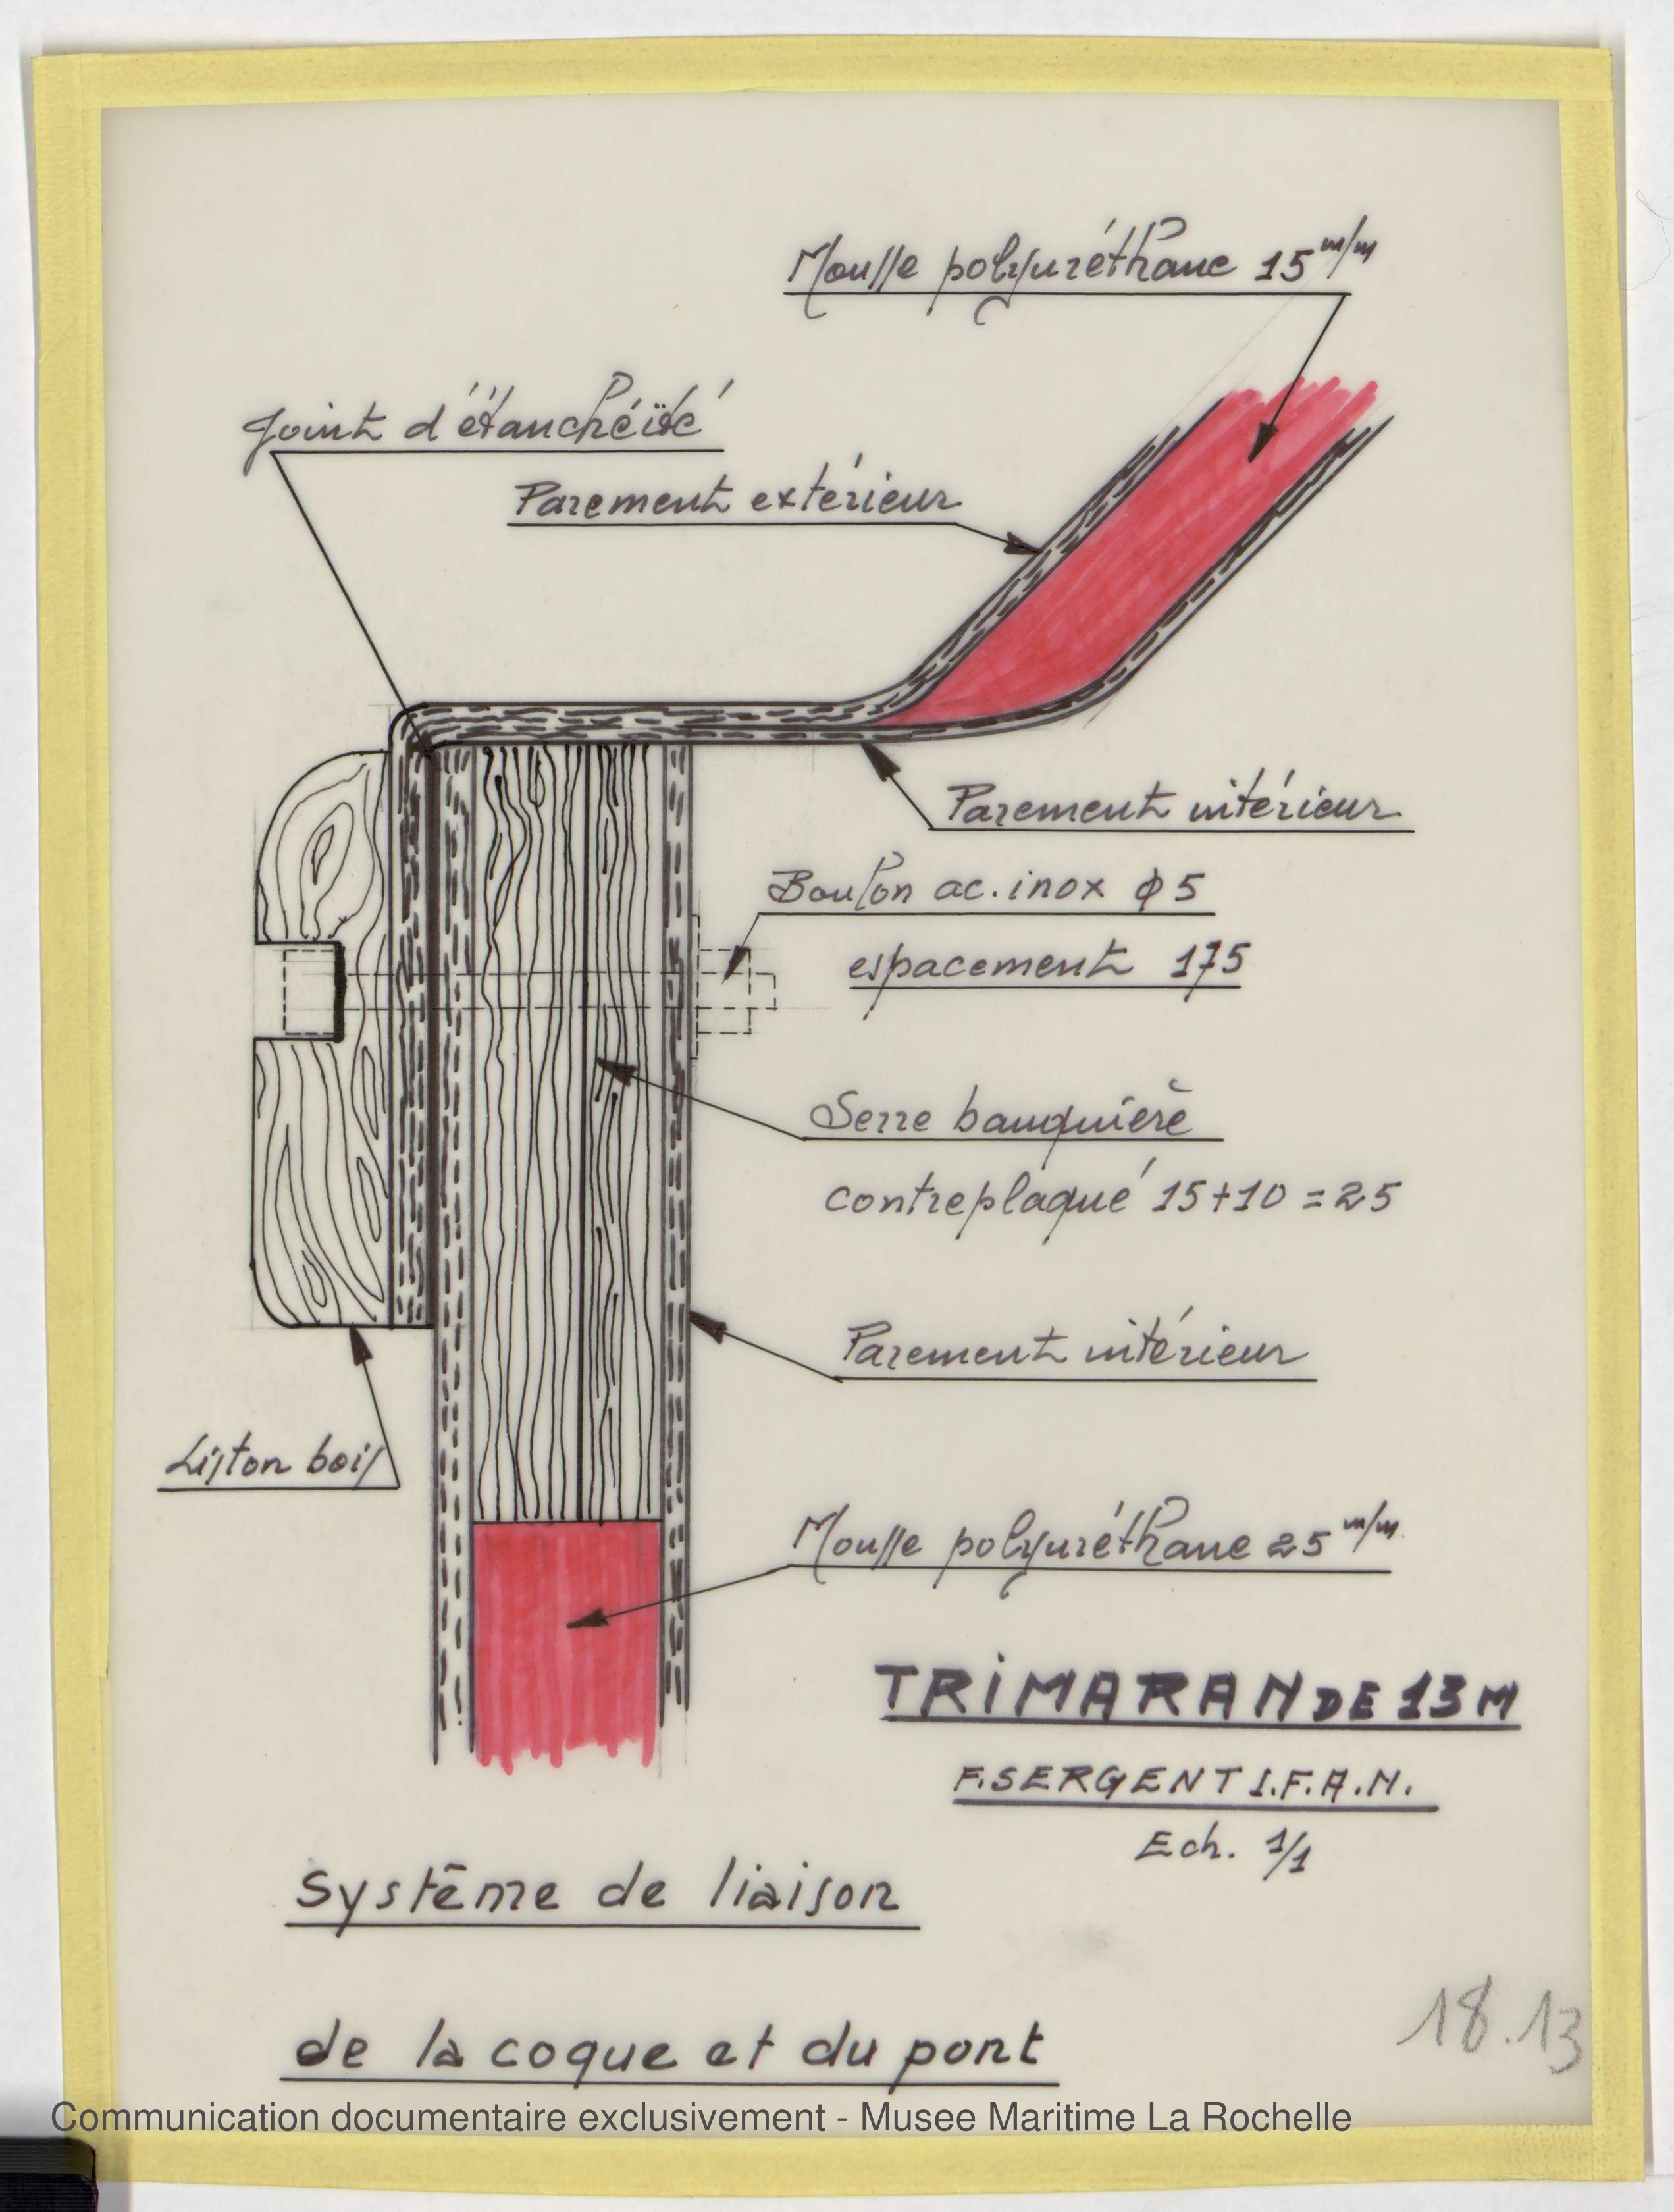 Mousse polyuréthane 15 m/m
Joint d'étanchéïté
Parement extérieur
Parement intérieur
Boulon ac. inox ϕ 5
espacement 175
Serre bauquière
contreplaqué 15+10 = 25
Parement intérieur
Liston bois
Mousse polyuréthane 25 m/m
TRiMARAN DE 13 M
F.SERGENT I.F.A.N.
Ech. 1/1
Système de liaison
de la coque et du pont
18.13
Communication documentaire exclusivement - Musee Maritime La Rochelle